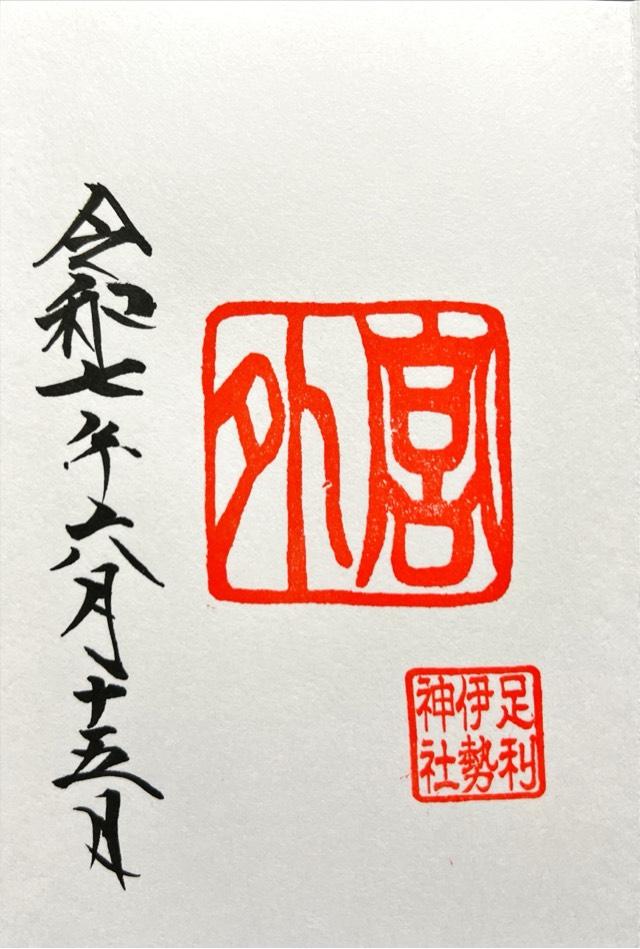 外宮
足利
伊勢
神社
令和七年六月十五日